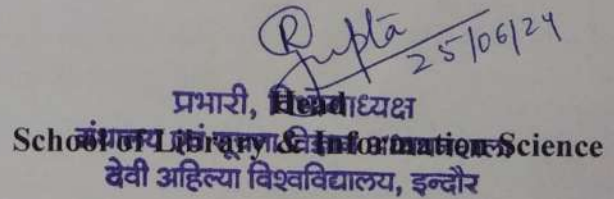 R Gupta
25/06/24
प्रभारी, विभागाध्यक्ष
Head
School of Library & Information Science
देवी अहिल्या विश्वविद्यालय, इन्दौर